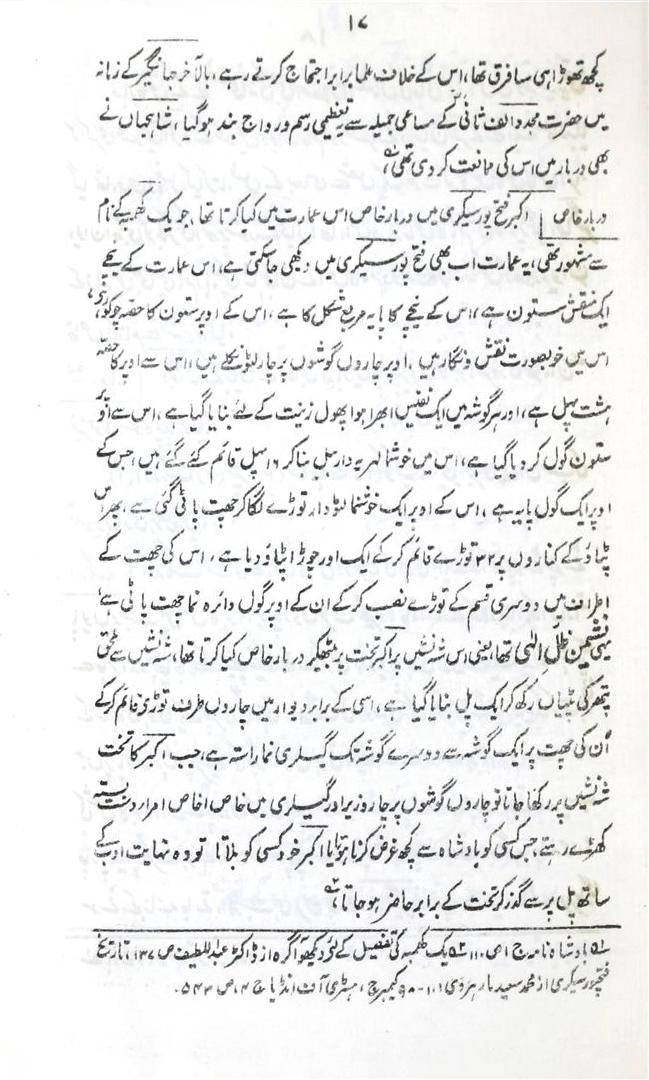 ۱۷
کچھ تھوڑا ہی سا فرق تھا، اس کے خلاف علما برابر احتجاج کرتے رہے، بالآخر جہانگیر کے زمانہ
میں حضرت مجدد الف ثانی کے مساعی جمیلہ سے یہ تعظیمی رسم و رواج بند ہو گیا، شاہجہاں نے
بھی دربار میں اس کی ممانعت کر دی تھی،
دربار خاص | اکبر فتح پور سیکری میں دربار خاص اس عمارت میں کیا کرتا تھا، جو یک کھمبہ کے نام
سے مشہور تھی، یہ عمارت اب بھی فتح پور سیکری میں دیکھی جا سکتی ہے، اس عمارت کے بیچ
ایک منقش ستون ہے، اس کے نیچے کا پایہ مربع شکل کا ہے، اس کے اوپر ستون کا حصہ چوکور ہے،
اس میں خوبصورت نقش و نگار ہیں، اوپر چاروں گوشوں پر چار لٹو نکلے ہیں، اس سے اوپر کا حصہ
ہشت پہل ہے، اور ہر گوشہ میں ایک نفیس ابھرا ہوا پھول زینت کے لئے بنایا گیا ہے، اس سے اوپر
ستون گول کر دیا گیا ہے، اس میں خوشنما لہریہ دار بیل بنا کر ۱۶ پہل قائم کئے گئے ہیں، جس کے
اوپر ایک گول پایہ ہے، اس کے اوپر ایک خوشنما لٹو دار توڑے لگا کر چھت پاٹی گئی ہے، پھر اس
پٹاؤ کے کناروں پر ۳۲ توڑے قائم کر کے ایک اور چوڑا پٹاؤ دیا ہے، اس کی چھت کے
اطراف میں دوسری قسم کے توڑے نصب کر کے ان کے اوپر گول دائرہ نما چھت پاٹی ہے،
یہی نشیمن ظل الٰہی تھا، یعنی اس شہ نشیں پر اکبر تخت پر بیٹھ کر دربار خاص کیا کرتا تھا، شہ نشیں سے ملحق
پتھر کی پٹیاں رکھ کر ایک پل بنایا گیا ہے، اسی کے برابر دیوار میں چاروں طرف توڑی قائم کر کے
اُن کی چھت پر ایک گوشہ سے دوسرے گوشہ تک گیلری نما راستہ ہے، جب اکبر کا تخت
شہ نشیں پر رکھا جاتا تو چاروں گوشوں پر چار وزیر اور گیلری میں خاص خاص امرا دست بستہ
کھڑے رہتے، جس کسی کو بادشاہ سے کچھ عرض کرنا ہوتا یا اکبر خود کسی کو بلاتا تو وہ نہایت ادب کے
ساتھ پل پر سے گذر کر تخت کے برابر حاضر ہو جاتا،
۱؎ بادشاہ نامہ ج ۱ ص ۱۱۰ ۲؎ یک کھمبہ کی تفصیل کے لئے دیکھو آگرہ از ڈاکٹر عبد اللطیف ص ۱۳۷، تاریخ
فتحپور سیکری از محمد سعید مارہروی ۱۰۱-۹۸، کیمبرج ہسٹری آف انڈیا ج ۴، ص ۵۴۳۔